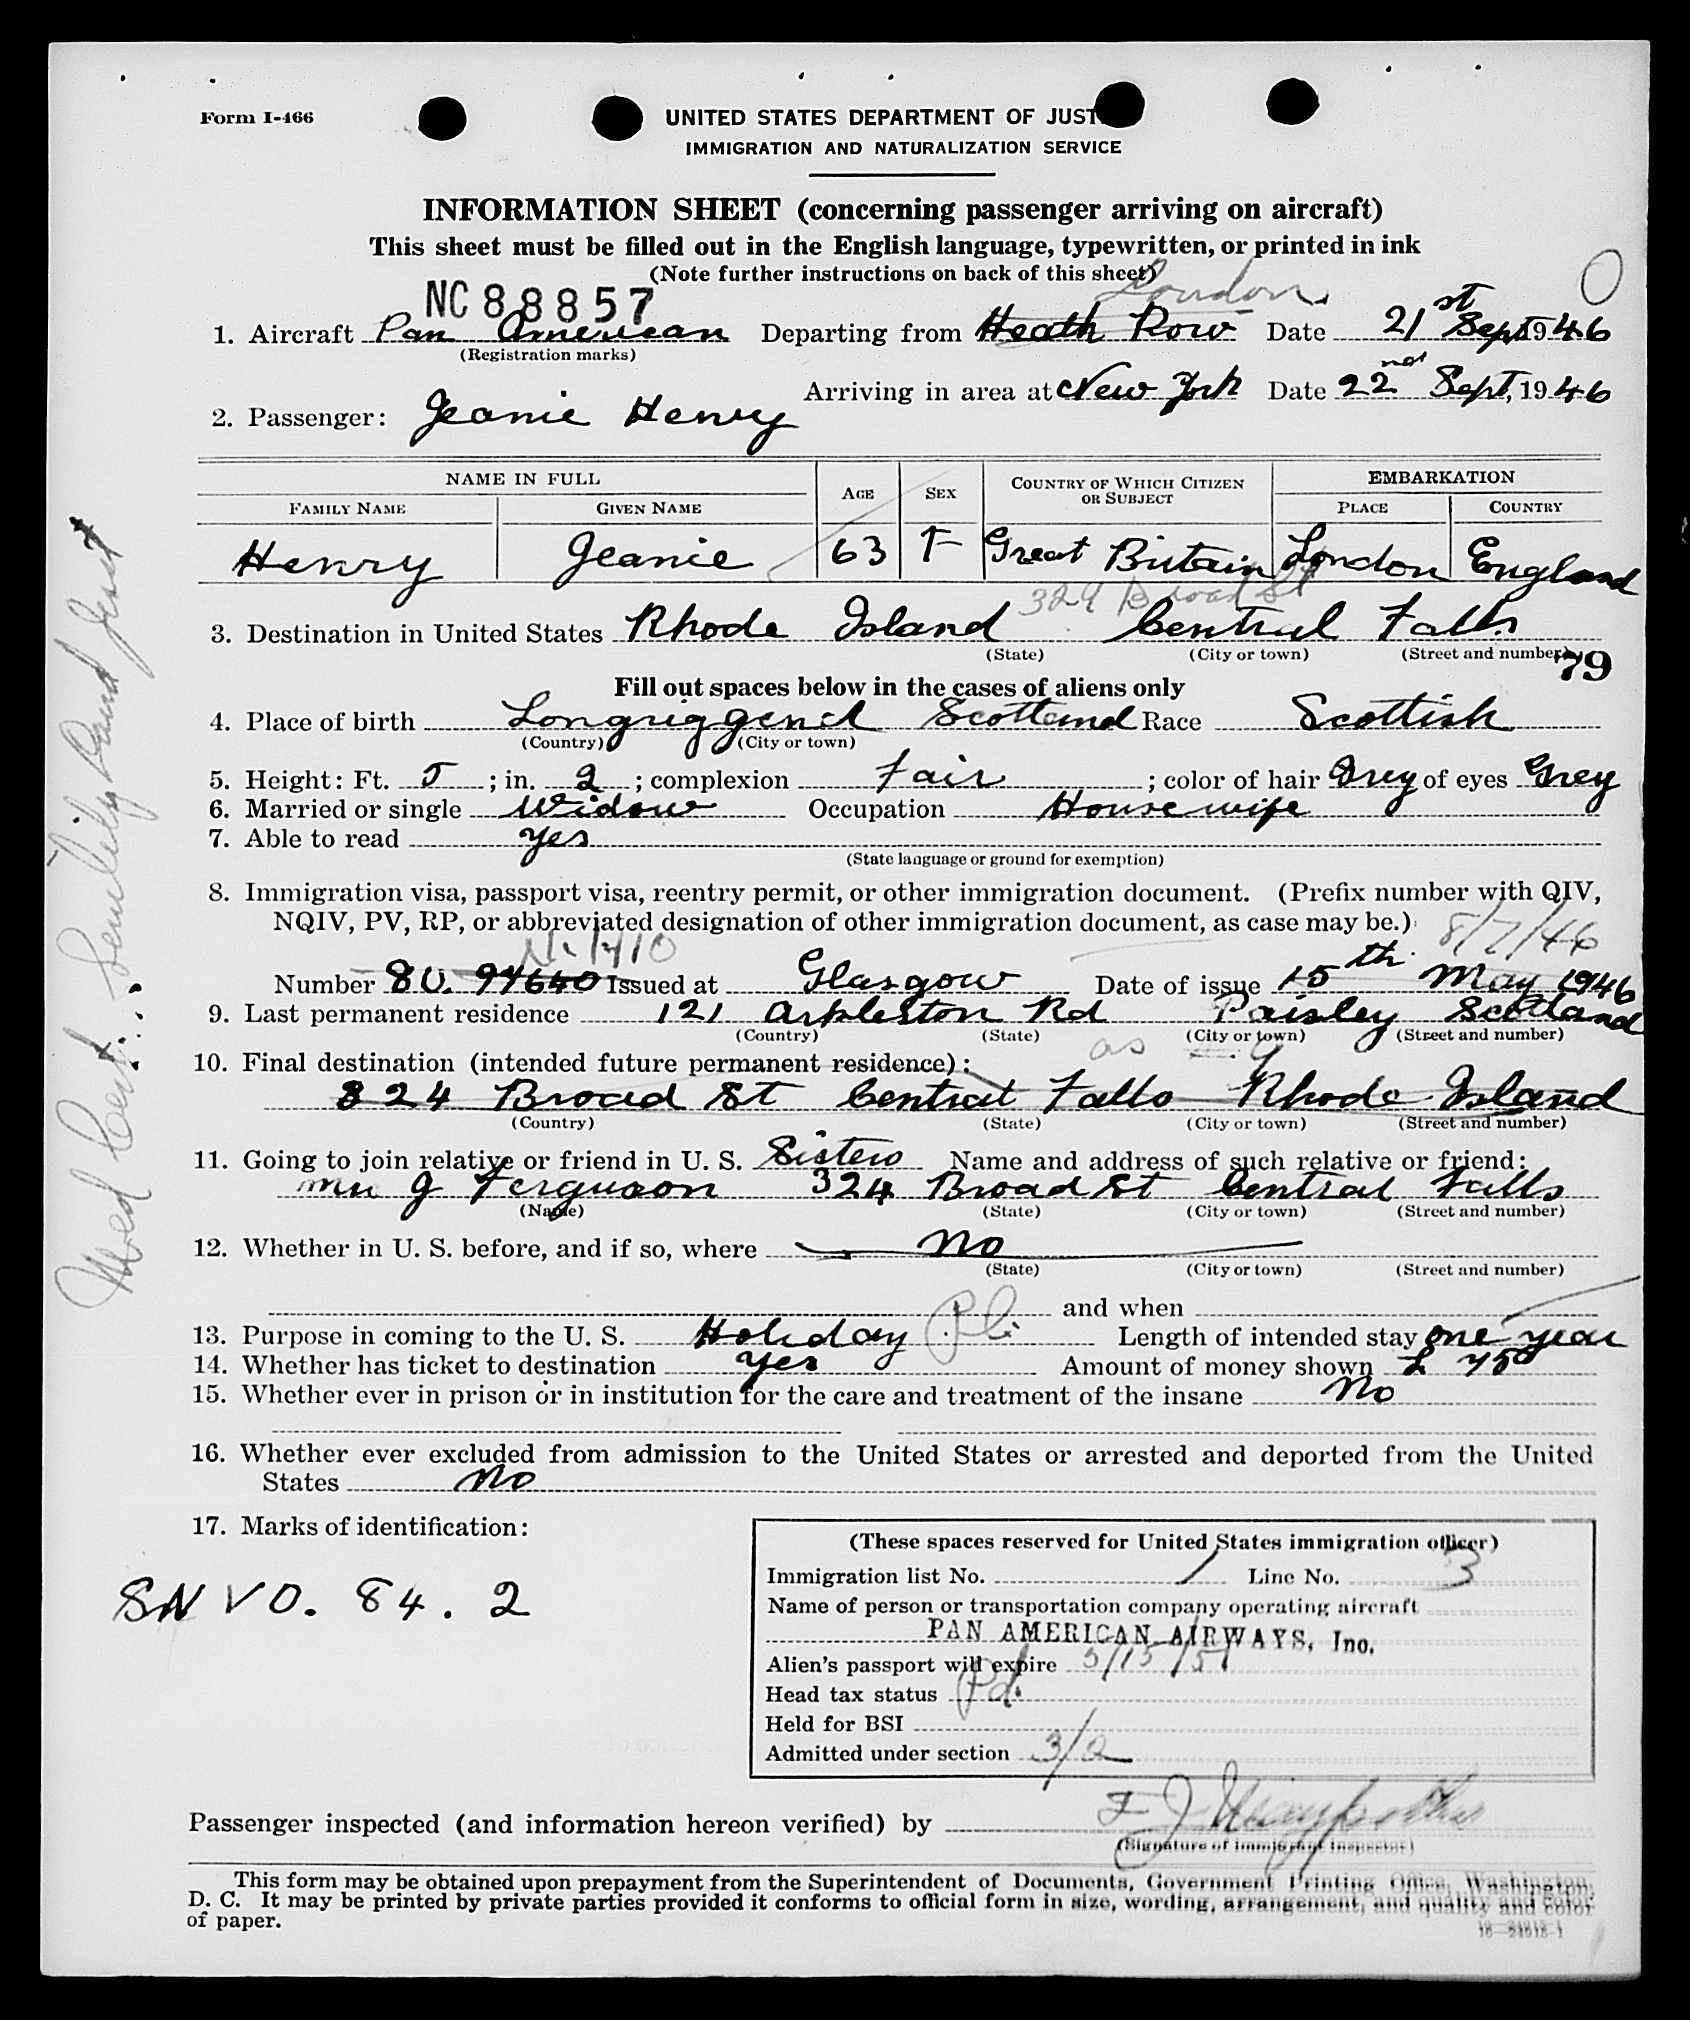 Form I-466
UNITED STATES DEPARTMENT OF JUST
IMMIGRATION AND NATURALIZATION SERVICE
INFORMATION SHEET (concerning passenger arriving on aircraft)
This sheet must be filled out in the English language, typewritten, or printed in ink
(Note further instructions on back of this sheet)
NC 88857 London
1. Aircraft Pan American Departing from Heath Row Date 21st Sept 1946
(Registration marks)
Arriving in area at New York Date 22nd Sept, 1946
2. Passenger: Jeanie Henry
NAME IN FULL AGE SEX COUNTRY OF WHICH CITIZEN OR SUBJECT EMBARKATION
FAMILY NAME GIVEN NAME PLACE COUNTRY
Henry Jeanie 63 F Great Britain London England
329 Broad St
3. Destination in United States Rhode Island Central Falls
(State) (City or town) (Street and number)
79
Fill out spaces below in the cases of aliens only
4. Place of birth Longriggend Scotland Race Scottish
(Country) (City or town)
5. Height: Ft. 5; in. 2; complexion Fair; color of hair Grey of eyes Grey
6. Married or single Widow Occupation Housewife
7. Able to read yes
(State language or ground for exemption)
8. Immigration visa, passport visa, reentry permit, or other immigration document. (Prefix number with QIV,
NQIV, PV, RP, or abbreviated designation of other immigration document, as case may be.)
8/7/46
Number 8U. 97640 Issued at Glasgow Date of issue 15th May 1946
9. Last permanent residence 121 Arkleston Rd Paisley Scotland
(Country) (State) (City or town) (Street and number)
10. Final destination (intended future permanent residence): as
324 Broad St Central Falls Rhode Island
(Country) (State) (City or town) (Street and number)
11. Going to join relative or friend in U. S. Sisters Name and address of such relative or friend:
Mrs J Ferguson 324 Broad St Central Falls
(Name) (State) (City or town) (Street and number)
12. Whether in U. S. before, and if so, where No
(State) (City or town) (Street and number)
and when
13. Purpose in coming to the U. S. Holiday Length of intended stay one year
14. Whether has ticket to destination yes Amount of money shown £ 75
15. Whether ever in prison or in institution for the care and treatment of the insane No
16. Whether ever excluded from admission to the United States or arrested and deported from the United
States No
17. Marks of identification:
SNVO. 84. 2
(These spaces reserved for United States immigration officer)
Immigration list No. 1 Line No. 3
Name of person or transportation company operating aircraft
PAN AMERICAN AIRWAYS, Inc.
Alien's passport will expire 5/15/51
Head tax status Pd.
Held for BSI
Admitted under section 3/2
Passenger inspected (and information hereon verified) by
(Signature of immigrant inspector)
This form may be obtained upon prepayment from the Superintendent of Documents, Government Printing Office, Washington,
D. C. It may be printed by private parties provided it conforms to official form in size, wording, arrangement, and quality and color
of paper.
Med Cert: